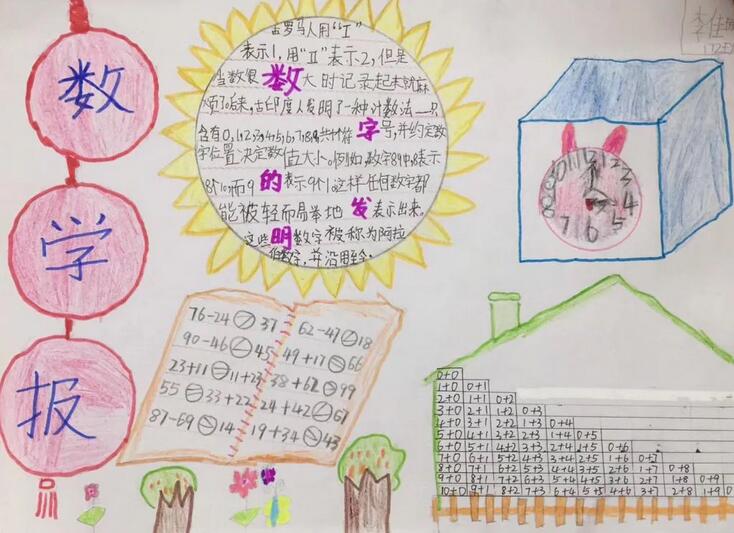 数
学
报
李佳
古罗马人用“Ⅰ”
表示1,用“Ⅱ”表示2,但是
当数很大时记录起来就麻
烦了。后来,古印度人发明了一种计数法——只
含有0,1,2,3,4,5,6,7,8,9共十个符号,并约定数
字位置决定数值大小。例如,数字89中,8表示
8个10,而9表示9个1。这样任何数字都
能被轻而易举地表示出来。
这些数字被称为阿拉
伯数字,并沿用至今。
数
字
的
发
明
11 12 1
10 2
9 3
8 4
7 6 5
76-24 37
90-46 45
23+11 11+23
55 33+22
87-69 14
62-47 18
49+17 66
38+62 99
24+42 67
19+34 43
0+0
1+0 0+1
2+0 1+1 0+2
3+0 2+1 1+2 0+3
4+0 3+1 2+2 1+3 0+4
5+0 4+1 3+2 2+3 1+4 0+5
6+0 5+1 4+2 3+3 2+4 1+5 0+6
7+0 6+1 5+2 4+3 3+4 2+5 1+6 0+7
8+0 7+1 6+2 5+3 4+4 3+5 2+6 1+7 0+8
9+0 8+1 7+2 6+3 5+4 4+5 3+6 2+7 1+8 0+9
10+0 9+1 8+2 7+3 6+4 5+5 4+6 3+7 2+8 1+9 0